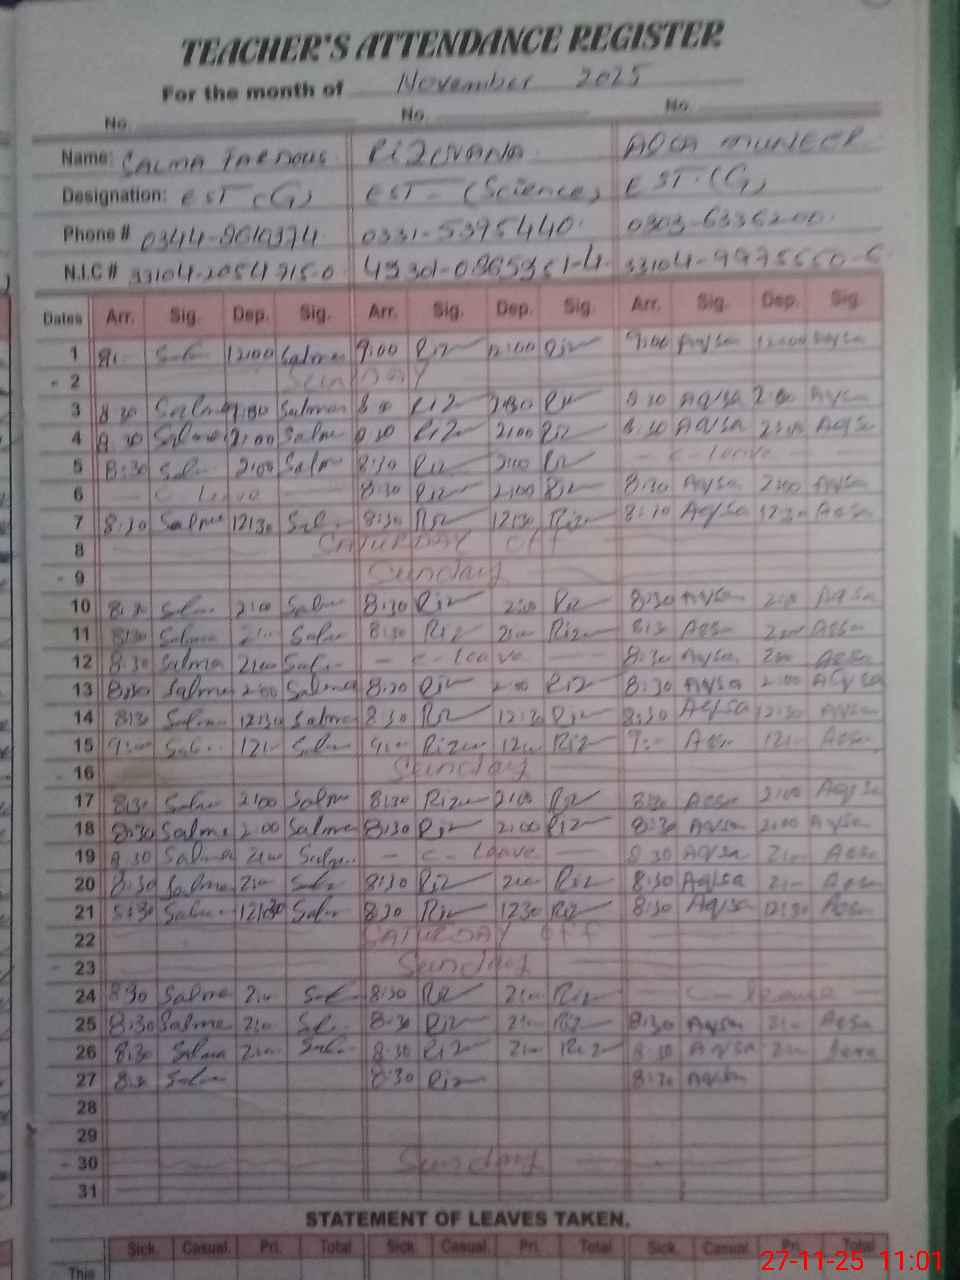 TEACHER'S ATTENDANCE REGISTER
For the month of November 2025
No. No. No.
Name: SALMA RIZWANA AQSA MUNEER
Designation: EST (G) EST - (Science) EST. (G)
Phone # 0331-5395440.
N.I.C #
Dates Arr. Sig. Dep. Sig. Arr. Sig. Dep. Sig. Arr. Sig. Dep. Sig.
1 12:00 Salma 9:00 Riz 12:00 Riz 9:00 Aqsa 12:00 Aqsa
2 SUNDAY
3 8 30 Salma Salma Riz Riz 8 30 AQSA Aqsa
4 8 30 Salma 2:00 Salma 8 30 Riz 2:00 Riz 8 30 AQSA 2:00 AQSA
5 8:30 Sal 2:00 Salm 8:30 Riz 2:00 Riz - C - Leave -
6 - C Leave - 8:30 Riz 2:00 Riz 8:30 Aqsa 2:00 Aqsa
7 8:30 Salma 12:30 Sal 8:30 Riz 12:30 Riz 8:30 Aqsa 12:30 Aqsa
8 SATURDAY off
9 Sunday
10 8:30 Salm 2:00 Salm 8:30 Riz 2:00 Riz 8:30 Aqsa 2:00 Aqsa
11 8:30 Salma 2:- Salm 8:30 Riz 2:- Riz 8:30 Aqsa 2:- Aqsa
12 8:30 Salma 2:00 Sal - C - Leave - 8:30 Aqsa 2:00 Aqsa
13 8:30 Salma 2:00 Salma 8:30 Riz 2:00 Riz 8:30 Aqsa 2:00 Aqsa
14 8:30 Salma 12:30 Salma 8:30 Riz 12:30 Riz 8:30 Aqsa 12:30 Aqsa
15 9:- Sal 12:- Salm 9:- Riz 12:- Riz 9:- Aqsa 12:- Aqsa
16 Sunday
17 8:30 Salma 2:00 Salma 8:30 Riz 2:00 Riz 8:30 Aqsa 2:00 Aqsa
18 8:30 Salma 2:00 Salma 8:30 Riz 2:00 Riz 8:30 Aqsa 2:00 Aqsa
19 8 30 Salma 2:00 Salma - C - Leave - 8 30 AQSA 2:- Aqsa
20 8:30 Salma 2:- Sal 8:30 Riz 2:- Riz 8:30 Aqsa 2:- Aqsa
21 8:30 Salm 12:30 Salm 8:30 Riz 12:30 Riz 8:30 Aqsa 12:30 Aqsa
22 SATURDAY off
23 Sunday
24 8:30 Salma 2:- Sal 8:30 Riz 2:- Riz - C - Leave
25 8:30 Salma 2:- Sal 8:30 Riz 2:- Riz 8:30 Aqsa 2:- Aqsa
26 8:30 Salma 2:- Sal 8:30 Riz 2:- Riz 8:30 AQSA 2:-
27 8:30 Salm 8:30 Riz 8:30 Aqsa
28
29
30 Sunday
31
STATEMENT OF LEAVES TAKEN.
Sick. Casual. Pri. Total Sick. Casual. Pri. Total Sick. Casual. Pri. Total
This
27-11-25 11:01